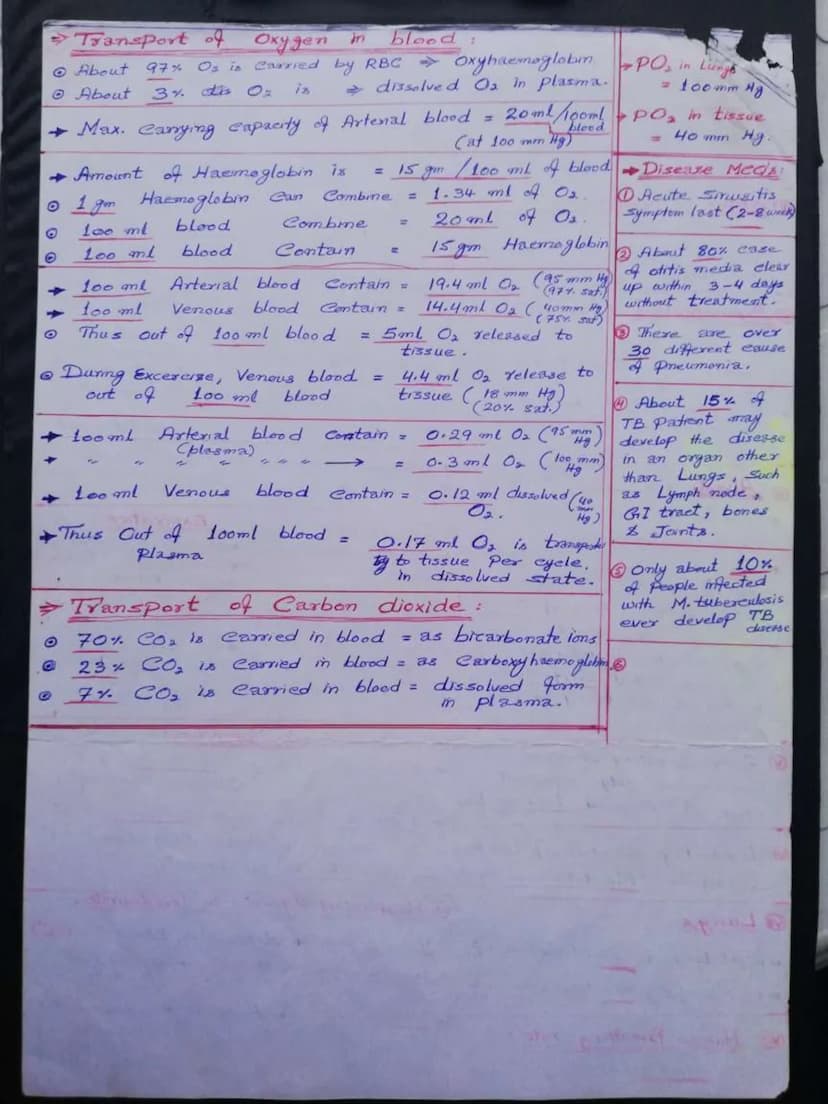 ⇒ Transport of Oxygen in blood :
⊙ About 97% O₂ is Carried by RBC ⇒ Oxyhaemoglobin
⊙ About 3% O₂ is ⇒ dissolved O₂ in Plasma.
→ Max. Carrying capacity of Arterial blood = 20ml/100ml blood
(at 100 mm Hg)
→ Amount of Haemoglobin is = 15 gm /100 ml of blood
⊙ 1 gm Haemoglobin Can Combine = 1.34 ml of O₂.
⊙ 100 ml blood Combine = 20 ml of O₂.
⊙ 100 ml blood Contain = 15 gm Haemoglobin
→ 100 ml Arterial blood Contain = 19.4 ml O₂ (95 mm Hg)
(97% sat.)
→ 100 ml Venous blood Contain = 14.4 ml O₂ (40mm Hg)
(75% sat)
⊙ Thus out of 100 ml blood = 5ml O₂ released to
tissue.
⊙ During Excercise, Venous blood = 4.4 ml O₂ release to
out of 100 ml blood tissue (18 mm Hg)
(20% sat.)
→ 100ml Arterial blood Contain = 0.29 ml O₂ (95 mm Hg)
(plasma)
→ " " " " " " " → = 0.3 ml O₂ (100 mm Hg)
→ 100 ml Venous blood Contain = 0.12 ml dissolved (40 mm Hg)
O₂.
→ Thus Out of 100ml blood = 0.17 ml O₂ is
Plasma to tissue Per cycle.
in dissolved state.
⇒ Transport of Carbon dioxide :
⊙ 70% CO₂ is Carried in blood = as bicarbonate ions
⊙ 23% CO₂ is Carried in blood = as Carboxyhaemoglobin.
⊙ 7% CO₂ is Carried in blood = dissolved form
in plasma.
→ PO₂ in Lungs
= 100 mm Hg
→ PO₂ in tissue
= 40 mm Hg.
→ Disease MCQ's:
① Acute Sinusitis
Symptom last (2-8 week)
② About 80% case
of otitis media clear
up within 3-4 days
without treatment.
③ There are over
30 different cause
of Pneumonia.
④ About 15% of
TB Patient may
develop the disease
in an organ other
than Lungs, Such
as Lymph node,
GI tract, bones
& Joints.
⑤ Only about 10%
of People infected
with M. tuberculosis
ever develop TB
disease
⑥